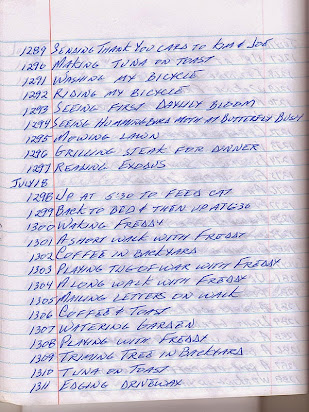 1289 SENDING THANK YOU CARD TO KIM & JOE
1290 MAKING TUNA ON TOAST
1291 WASHING MY BICYCLE
1292 RIDING MY BICYCLE
1293 SEEING FIRST DAYLILY BLOOM
1294 SEEING HUMMINGBIRD MOTH AT BUTTERFLY BUSH
1295 MOWING LAWN
1296 GRILLING STEAK FOR DINNER
1297 READING EXODUS
JULY 18
1298 UP AT 5:30 TO FEED CAT
1299 BACK TO BED & THEN UP AT 6:36
1300 WAKING FREDDY
1301 A SHORT WALK WITH FREDDY
1302 COFFEE IN BACKYARD
1303 PLAYING TUG OF WAR WITH FREDDY
1304 A LONG WALK WITH FREDDY
1305 MAILING LETTERS ON WALK
1306 COFFEE & TOAST
1307 WATERING GARDEN
1308 PLAYING WITH FREDDY
1309 TRIMING TREE IN BACKYARD
1310 TUNA ON TOAST
1311 EDGING DRIVEWAY